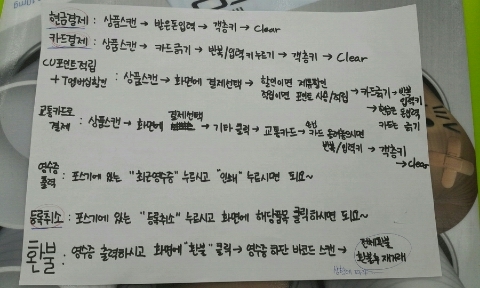 현금결제 : 상품스캔 → 받은돈입력 → 객층키 → Clear
카드결제 : 상품스캔 → 카드긁기 → 반복/입력키누르기 → 객층키 → Clear
CU포인트적립
+ T멤버십할인 : 상품스캔 → 화면에 결제선택 → 할인이면 제휴할인
적립이면 포인트 사용/적립 → 카드긁기 → 반복
입력키
→ 현금은 돈입력
카드는 긁기
교통카드로
결제 : 상품스캔 → 화면에 결제선택 → 기타 클릭 → 교통카드 → 카드 올려놓으시면
반복/입력키 → 객층키
→ Clear
영수증
출력 : 포스기에 있는 "최근영수증" 누르시고 "인쇄" 누르시면 되요~
등록취소 : 포스기에 있는 "등록취소" 누르시고 화면에 해당품목 클릭하시면 되요~
환불 : 영수증 출력하시고 화면에 "환불" 클릭 → 영수증 하단 바코드 스캔 → 전체환불
환불후 재거래